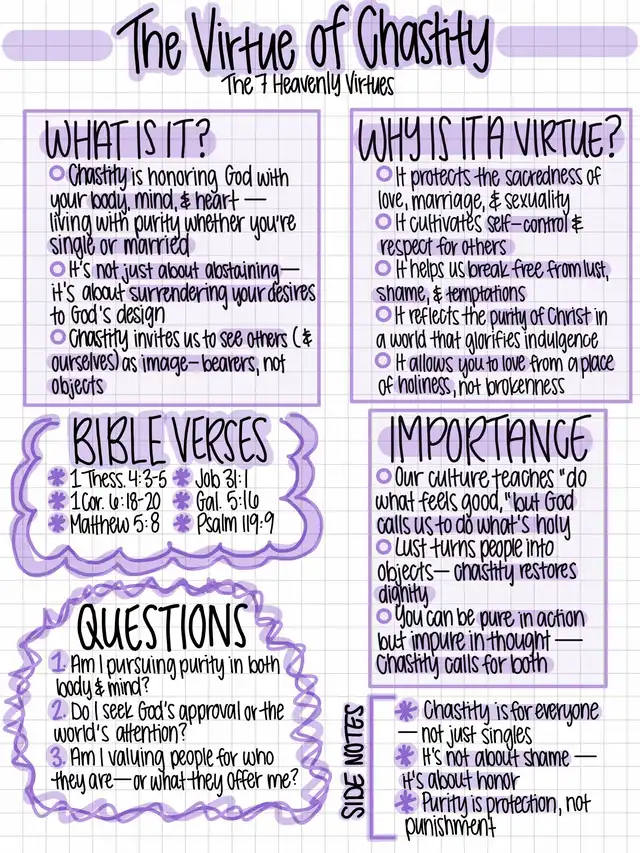 The Virtue of Chastity
The 7 Heavenly Virtues
WHAT IS IT?
Chastity is honoring God with
your body, mind, & heart —
living with purity whether you're
single or married
It's not just about abstaining—
it's about surrendering your desires
to God's design
Chastity invites us to see others (&
ourselves) as image-bearers, not
objects
WHY IS IT A VIRTUE?
It protects the sacredness of
love, marriage, & sexuality
It cultivates self-control &
respect for others
It helps us break free from lust,
shame, & temptations
It reflects the purity of Christ in
a world that glorifies indulgence
It allows you to love from a place
of holiness, not brokenness
BIBLE VERSES
1 Thess. 4:3-5 Job 31:1
1 Cor. 6:18-20 Gal. 5:16
Matthew 5:8 Psalm 119:9
IMPORTANCE
Our culture teaches "do
what feels good," but God
calls us to do what's holy
Lust turns people into
objects— chastity restores
dignity
You can be pure in action
but impure in thought —
Chastity calls for both
QUESTIONS
1. Am I pursuing purity in both
body & mind?
2. Do I seek God's approval or the
world's attention?
3. Am I valuing people for who
they are—or what they offer me?
SIDE NOTES
Chastity is for everyone
— not just singles
It's not about shame —
it's about honor
Purity is protection, not
punishment